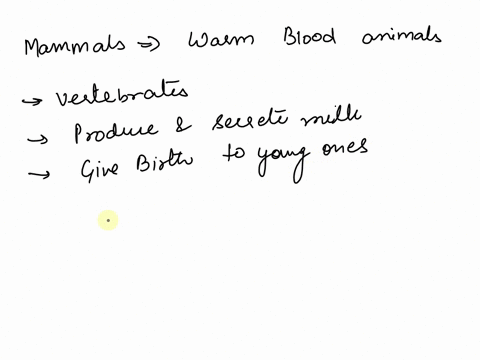 Mammals => Warm Blood animals
→ Vertebrates
→ Produce & secrete milk
→ Give Birth to young ones